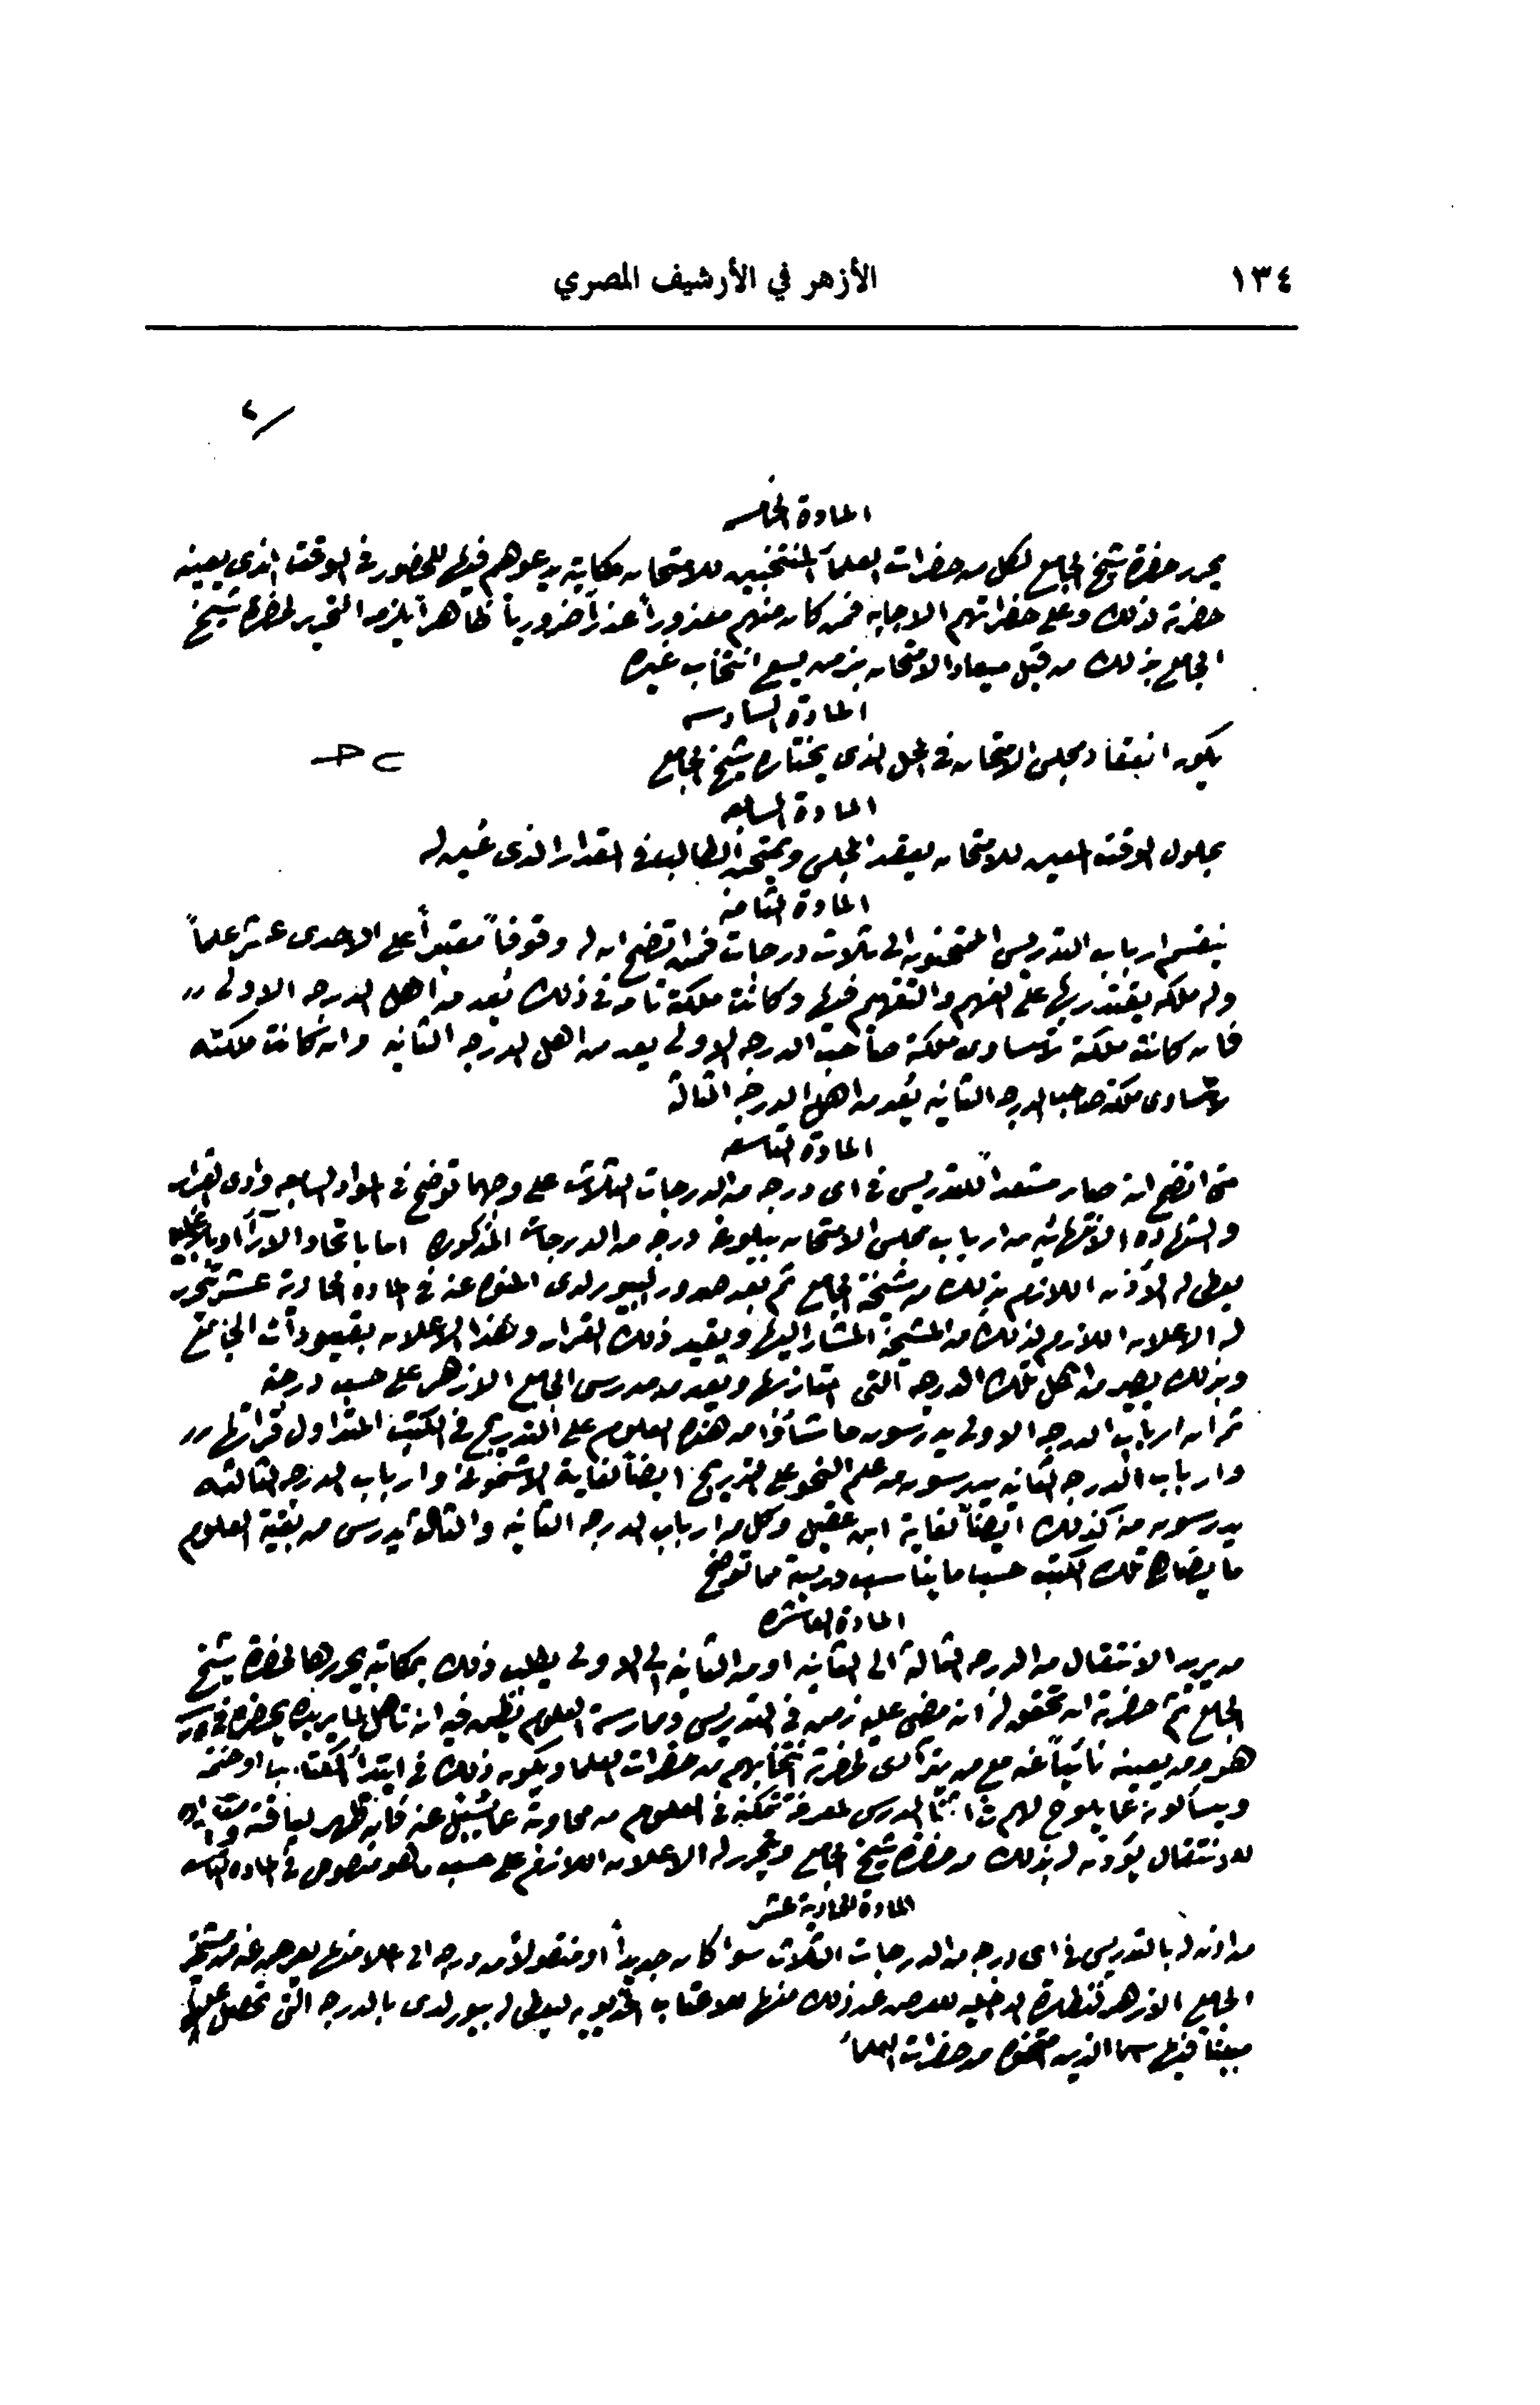 ١٣٤
الأزهر في الأرشيف المصري
المادة الخامسه
يحرر حضرة شيخ الجامع لكل من حضرات العلمآ المنتخبين للامتحان مكاتبة يدعوهم فيها للحضور في الوقت الذى يعينه
حضرته لذلك وعلى حضراتهم الاجابه فمن كان منهم معذوراً عذراً ضرورياً ظاهراً يلزمه التحرير لحضرة شيخ
الجامع بذلك من قبل ميعاد الامتحان بزمن يسع انتخاب غيره
المادة السادسه
يكون انعقاد مجلس الامتحان في المحل الذى يختاره شيخ الجامع
المادة السابعه
بحلول الوقت المعين للامتحان يعقد المجلس ويمتحن الطالب في المقدار الذى عُين له
المادة الثامنه
ينقسم ارباب التدريس الممتحنون الى ثلاث درجات فمن اتضح ان له وقوفاً معتبراً على الاحدى عشر علماً
وله ملكه يقتدر بها على الفهم والتفهيم فيها وكانت ملكته تامه في ذلك يُعد من اهل الدرجه الاولى
فان كانت ملكته لا تساوى ملكة صاحب الدرجه الاولى يعد من اهل الدرجه الثانيه وان كانت ملكته
لا تساوى ملكة صاحب الدرجه الثانيه يُعد من اهل الدرجه الثالثة
المادة التاسعه
متى اتضح انه صار مستعداً للتدريس في اى درجه من الدرجات الثلاث على وجه ما توضح في المواد السابعه وادى القرار
والشهاده الانتهائيه من ارباب مجلس الامتحان ببلوغه درجه من الدرجات المذكوره اما باتحاد الآرآ او بالاغلبيه
يعطى له الاذن اللازم بذلك من مشيخة الجامع ثم بعد صدور البيورلدى المنوه عنه في الماده الحادية عشر يحرر
له الاعلان اللازم بذلك من المشيخة المشار اليها ويقيد ذلك القرار وهذا الاعلان بقيودات الجامع
وبذلك يصير من اهل تلك الدرجه التى امتاز بها ويعد من مدرسى الجامع الازهر على حسب درجته
ثم ان ارباب الدرجه الاولى يدرسون ما شآؤا من هذه العلوم على التدريج في الكتب المتداول قرائتها
وارباب الدرجه الثانيه يدرسون من علم النحو على التدريج ايضاً لغاية الاشمونى وارباب الدرجه الثالثه
يدرسون منه كذلك ايضاً لغاية ابن عقيل وكل من ارباب الدرجه الثانيه والثالثة يدرس من بقية العلوم
ما يضاهى تلك الكتب حسبما يناسب درجته مما توضح
المادة العاشره
من يريد الانتقال من الدرجه الثالثة الى الثانيه او من الثانيه الى الاولى يطلب ذلك بمكاتبه يحررها لحضرة شيخ
الجامع ثم حضرته ان تحقق له انه مضى عليه زمن في التدريس وممارسة العلوم يظن فيه انه تاهل لما يريده يحضر في درسه
هو ومن يعينه نائباً عنه مع من يترآى لحضرته انتخابهم من حضرات العلما ويكون ذلك في ابتدآ الكتاب او ختمه
ويسألونه عما يلوح لهم في اثنآ الدرس لمعرفة تمكنه في العلوم من محاورته عما يسئل عنه فان ظهر لياقته
للانتقال يؤذن له بذلك من حضرة شيخ الجامع ويحرر له الاعلان اللازم على حسب ما هو منصوص في الماده التاسعه
المادة الحادية عشر
من اذن له بالتدريس في اى درجه من الدرجات الثلاث سوا كان جديداً او منقولاً من درجه الى اعلا منها يعرض عنه من مشيخة
الجامع الازهر لنظارة الداخليه للعرض عن ذلك منها للاعتاب الخديويه ليعطى له بيورلدى بالدرجه التى تحصل عليها
مبيناً فيها اسما الذين امتحنوه من حضرات العلمآ